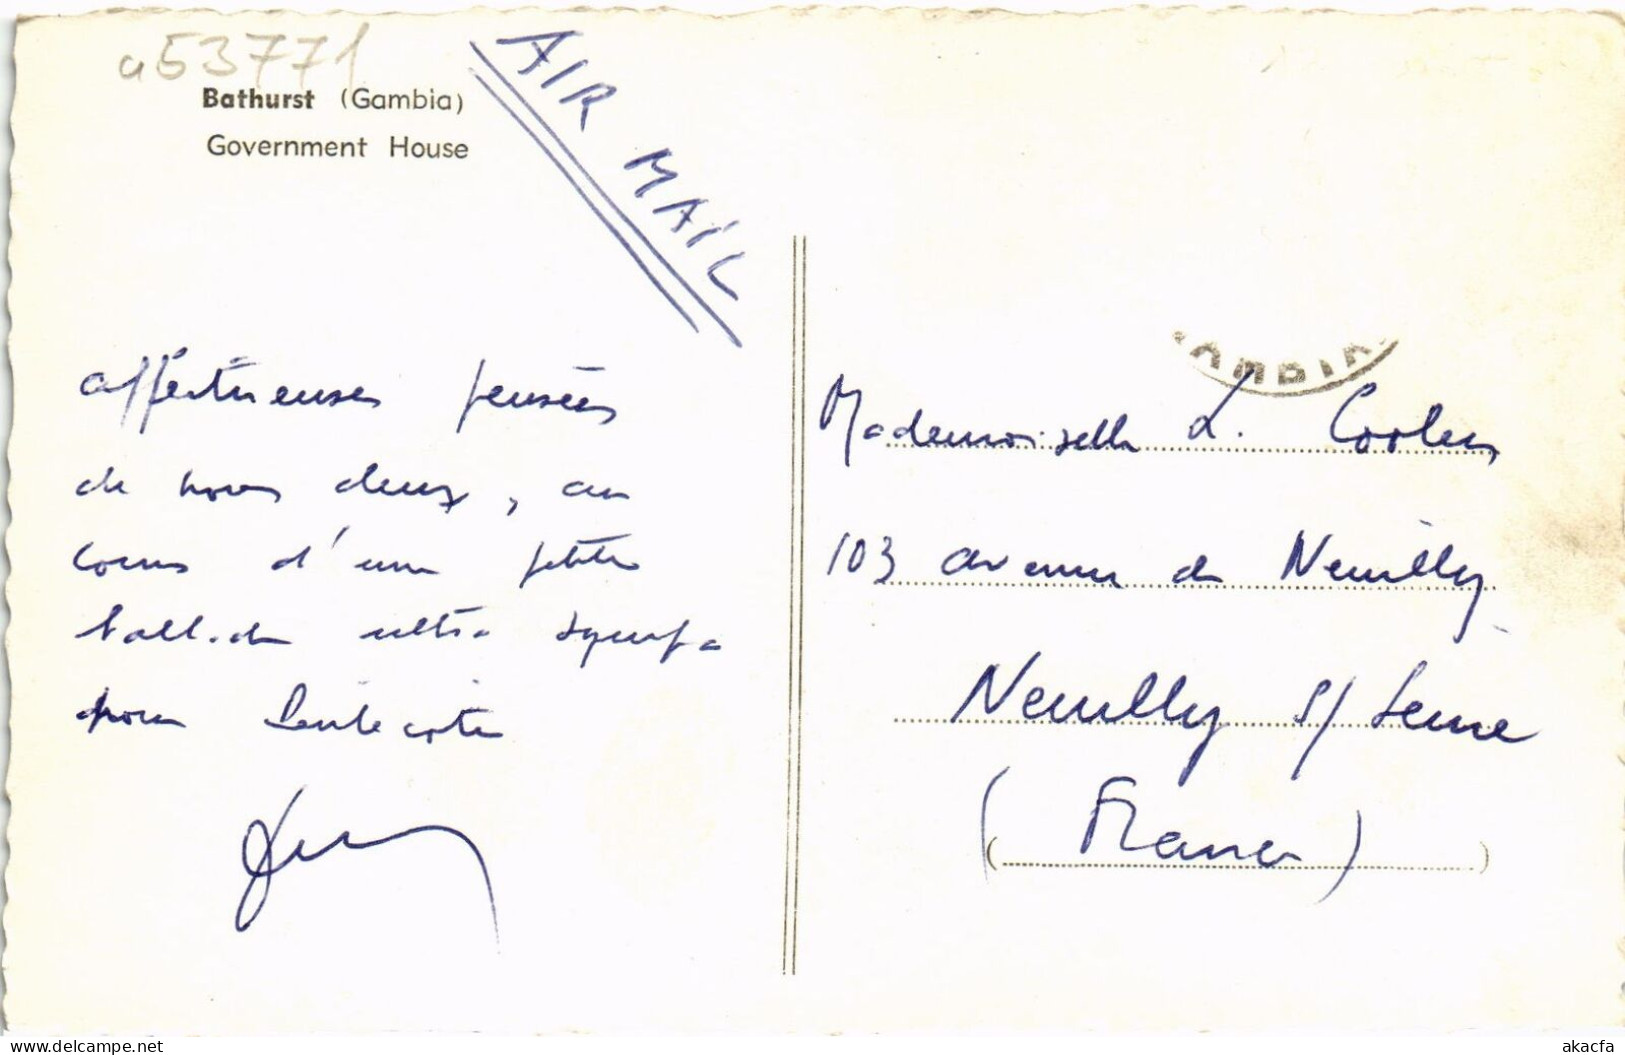 a53771
Bathurst (Gambia)
Government House
AIR MAIL
affectueuses pensées
de nous deux, au
cours d'une petite
ballade ultra sympa
pour Pentecôte
GAMBIA
Mademoiselle L.
103 avenue de Neuilly
Neuilly s/ Seine
(France)
delcampe.net
akacfa